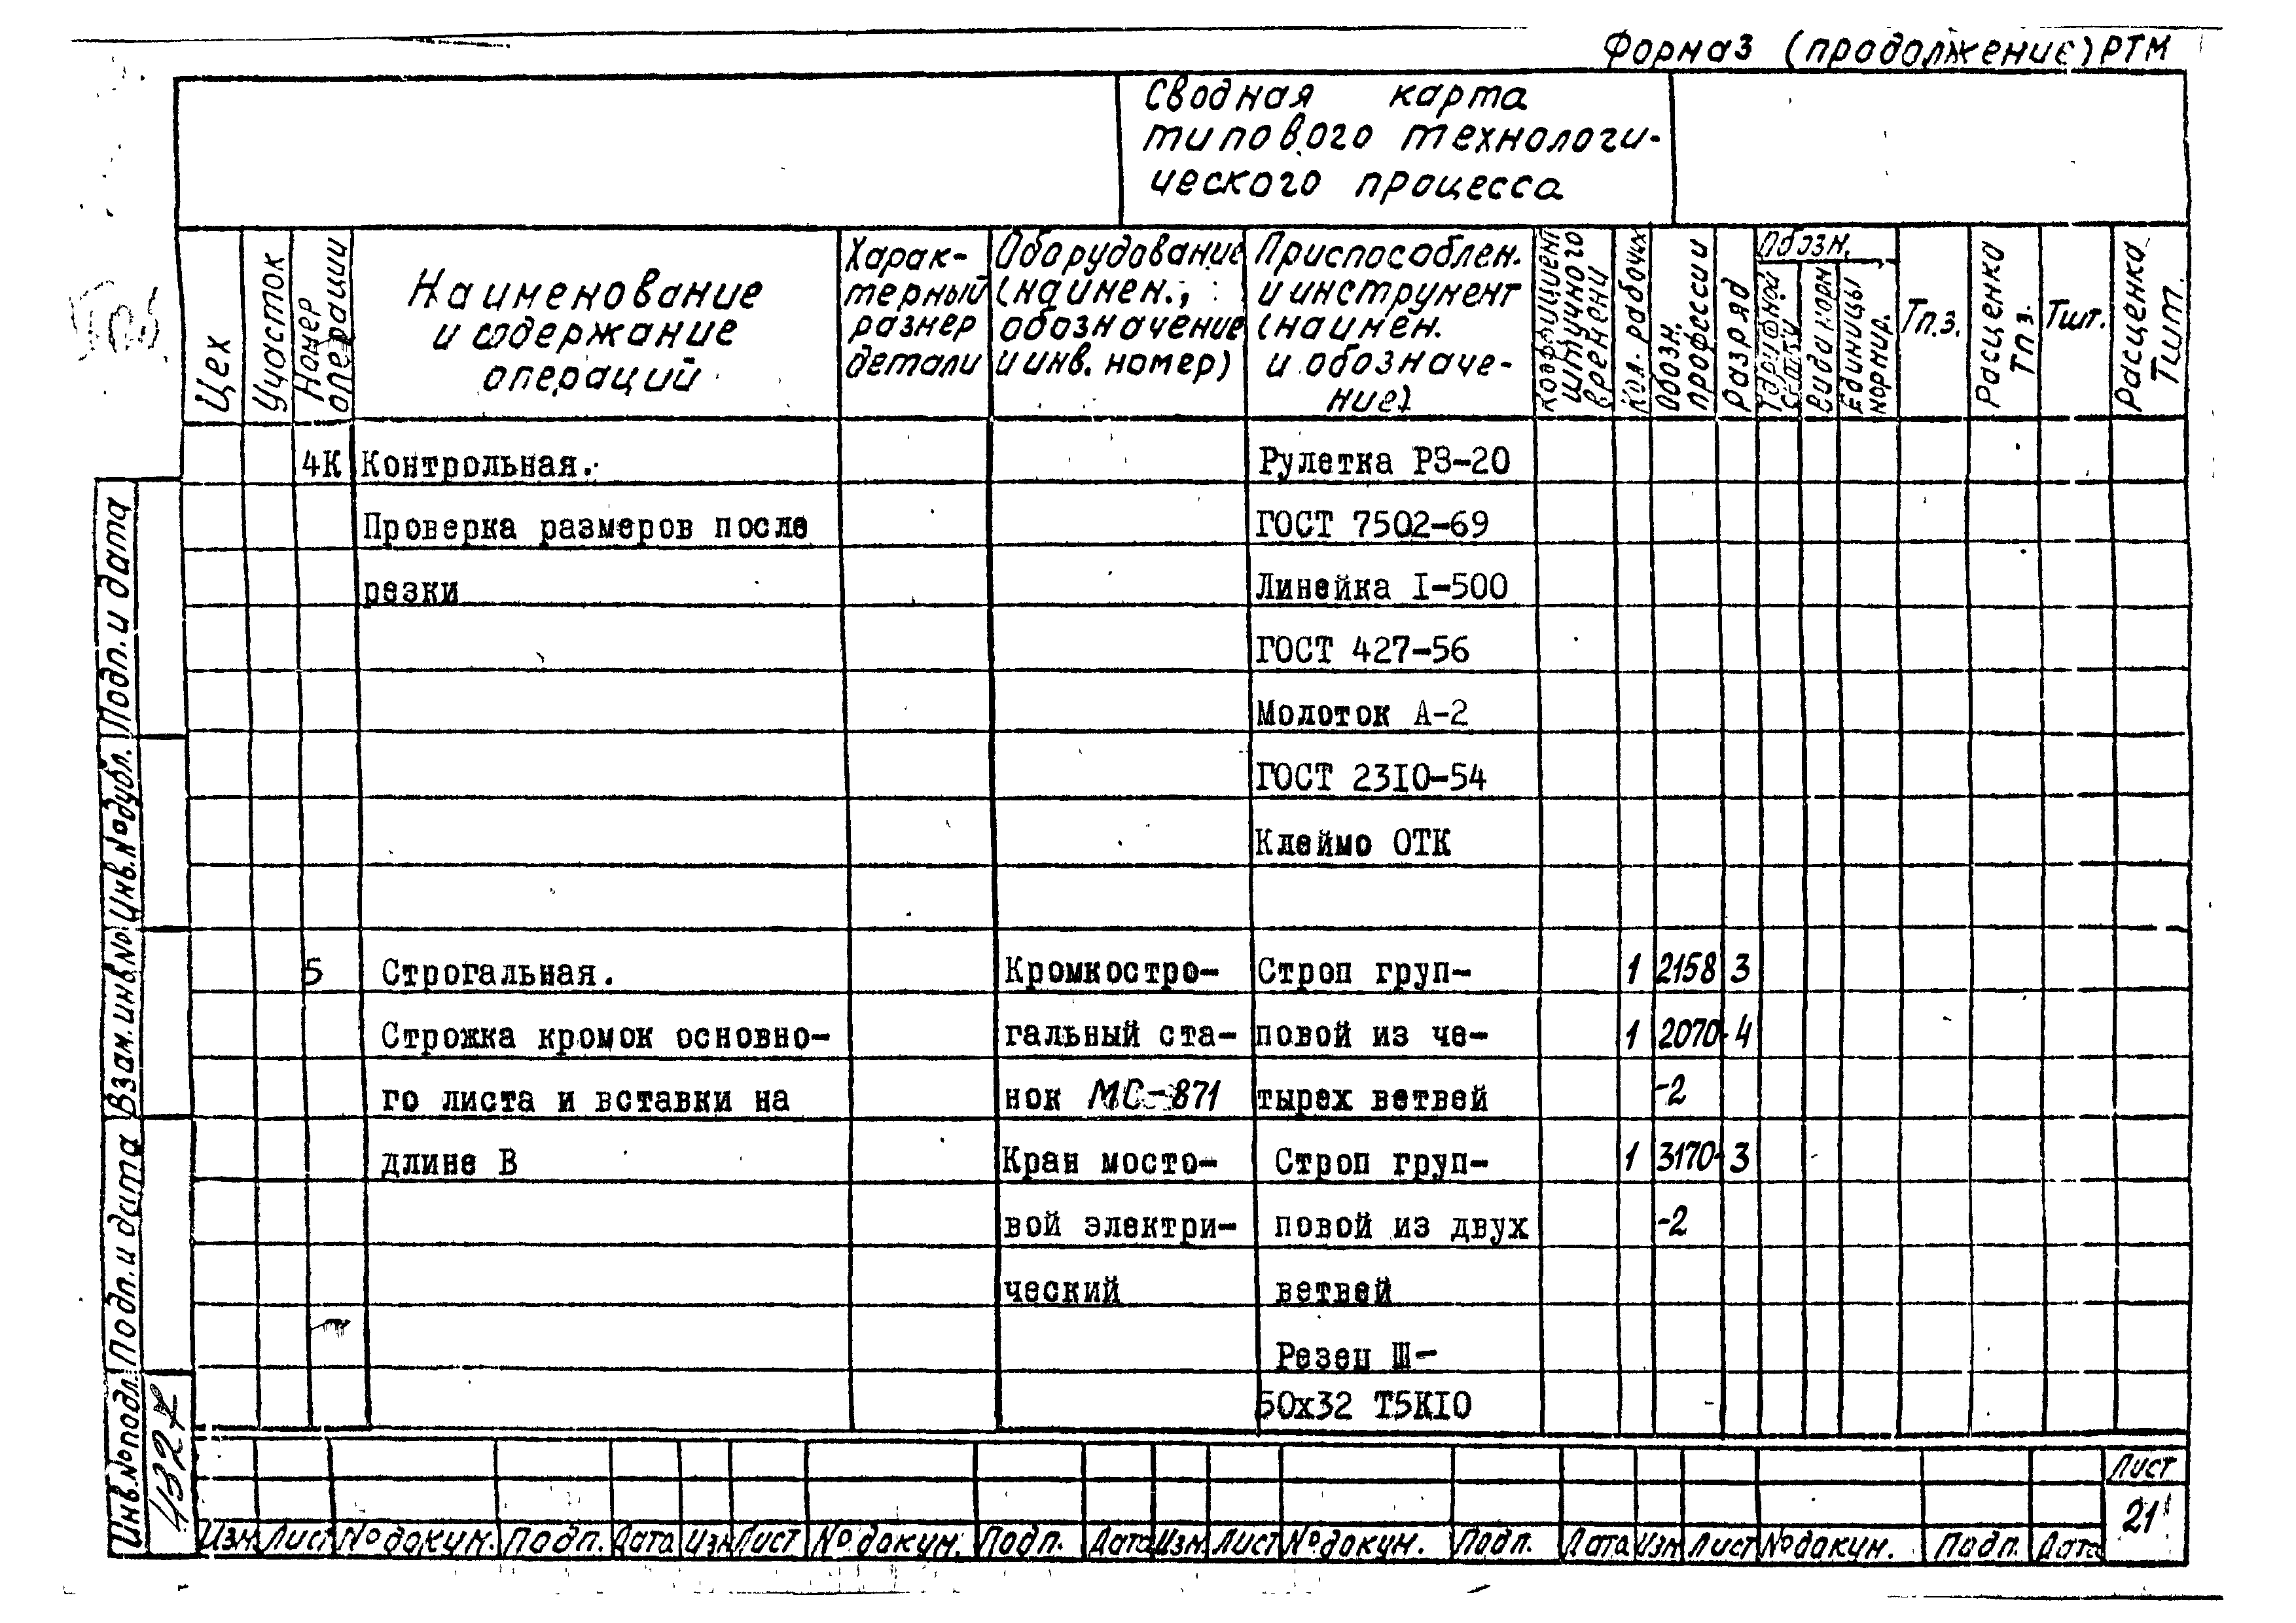 Форма 3 (продолжение) РТМ
Сводная карта
типового технологи-
ческого процесса
Цех
Участок
Номер операции
Наименование
и содержание
операций
Харак-
терный
размер
детали
Оборудование
(наимен.,
обозначение
и инв. номер)
Приспособлен.
и инструмент
(наимен.
и обозначе-
ние)
Коэффициент штучного времени
Кол. рабочих
Обозн. профессии
Разряд
Обозн.
Тарифной сетки
Вида норм
Единицы нормир.
Тп.з.
Расценка Тп.з.
Тшт.
Расценка Тшт.
4К Контрольная. Рулетка РЗ-20
Проверка размеров после ГОСТ 7502-69
резки Линейка I-500
ГОСТ 427-56
Молоток А-2
ГОСТ 23I0-54
Клеймо ОТК
5 Строгальная. Кромкостро- Строп груп- 1 2158 3
Строжка кромок основно- гальный ста- повой из че- 1 2070- 4
го листа и вставки на нок МС-871 тырех ветвей -2
длине В Кран мосто- Строп груп- 1 3170- 3
вой электри- повой из двух -2
ческий ветвей
Резец Ш-
50х32 Т5КI0
Подп. и дата
Инв. № дубл.
Взам. инв. №
Подп. и дата
Инв. № подл.
Лист
21
Изм Лист № докум. Подп. Дата Изм Лист № докум. Подп. Дата Изм Лист № докум. Подп. Дата Изм Лист № докум. Подп. Дата